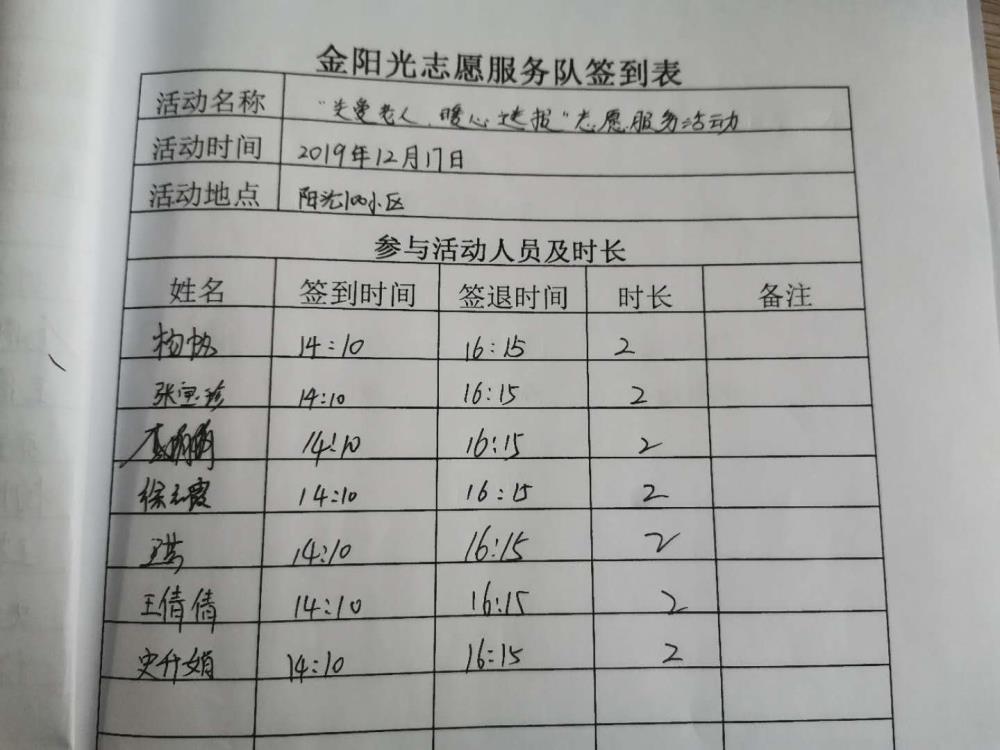 金阳光志愿服务队签到表
活动名称 "关爱老人 暖心速报"志愿服务活动
活动时间 2019年12月17日
活动地点 阳光100小区
参与活动人员及时长
姓名 签到时间 签退时间 时长 备注
杨帆 14:10 16:15 2
张宝珍 14:10 16:15 2
14:10 16:15 2
徐志霞 14:10 16:15 2
14:10 16:15 2
王倩倩 14:10 16:15 2
史升娟 14:10 16:15 2